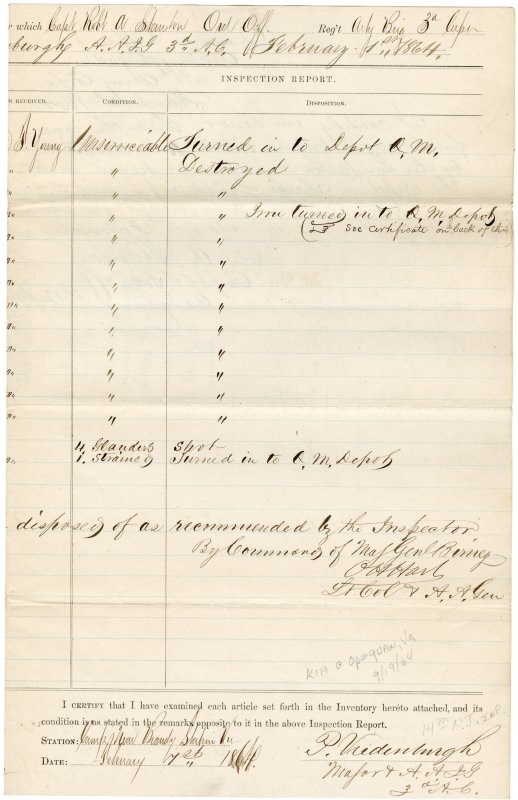 r which Capt Robt A Stanton Ord Off. Reg't Arty Brig 3d Corps
burgh A. A. I. G 3d A. C. February 1st, 1864.
INSPECTION REPORT.
M RECEIVED. CONDITION. DISPOSITION.
J. Young Unserviceable Turned in to Depot Q. M.
" Destroyed
" "
" " Iron turned in to Q. M. Depot
(See certificate on back of this)
" "
" "
" "
" "
" "
" "
" "
" "
" "
4. Glanders Shot
1. Strained Turned in to Q. M. Depot
disposed of as recommended by the Inspector
By Command of Maj Genl Birney
O H Hart
Lt Col & A. A. Gen
KIA @ Opequan, Va
9/19/64
I CERTIFY that I have examined each article set forth in the Inventory hereto attached, and its
condition is as stated in the remarks opposite to it in the above Inspection Report.
14th N.J. Inf.
STATION: Camp Near Brandy Station Va
DATE: February 1864.
P. Vredenburgh
Major & A. A. I. G
3d A. C.